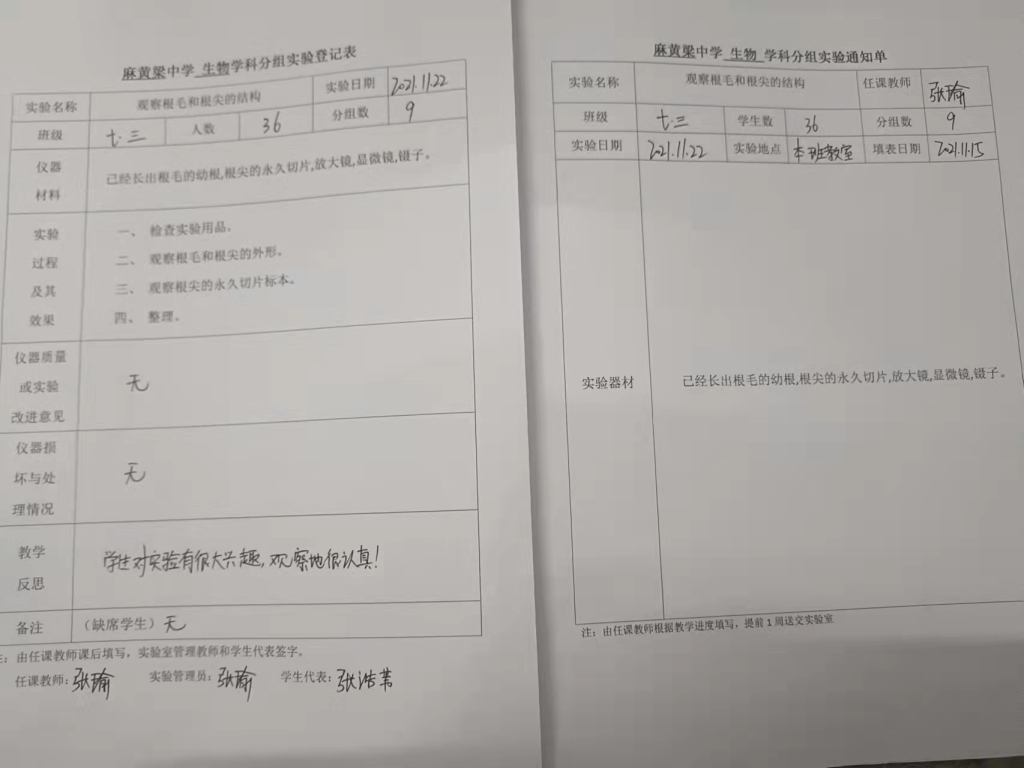 麻黄梁中学 生物学科分组实验登记表
实验名称 观察根毛和根尖的结构 实验日期 2021.11.22
班级 七.三 人数 36 分组数 9
仪器
材料
已经长出根毛的幼根,根尖的永久切片,放大镜,显微镜,镊子。
实验
过程
及其
效果
一、 检查实验用品。
二、 观察根毛和根尖的外形。
三、 观察根尖的永久切片标本。
四、 整理。
仪器质量
或实验
改进意见
无
仪器损
坏与处
理情况
无
教学
反思
学生对实验有很大兴趣,观察地很认真!
备注 (缺席学生) 无
注: 由任课教师课后填写,实验室管理教师和学生代表签字。
任课教师: 张瑜 实验管理员: 张瑜 学生代表: 张浩
麻黄梁中学 生物 学科分组实验通知单
实验名称 观察根毛和根尖的结构 任课教师 张瑜
班级 七.三 学生数 36 分组数 9
实验日期 2021.11.22 实验地点 本班教室 填表日期 2021.11.15
实验器材 已经长出根毛的幼根,根尖的永久切片,放大镜,显微镜,镊子。
注: 由任课教师根据教学进度填写,提前1周送交实验室